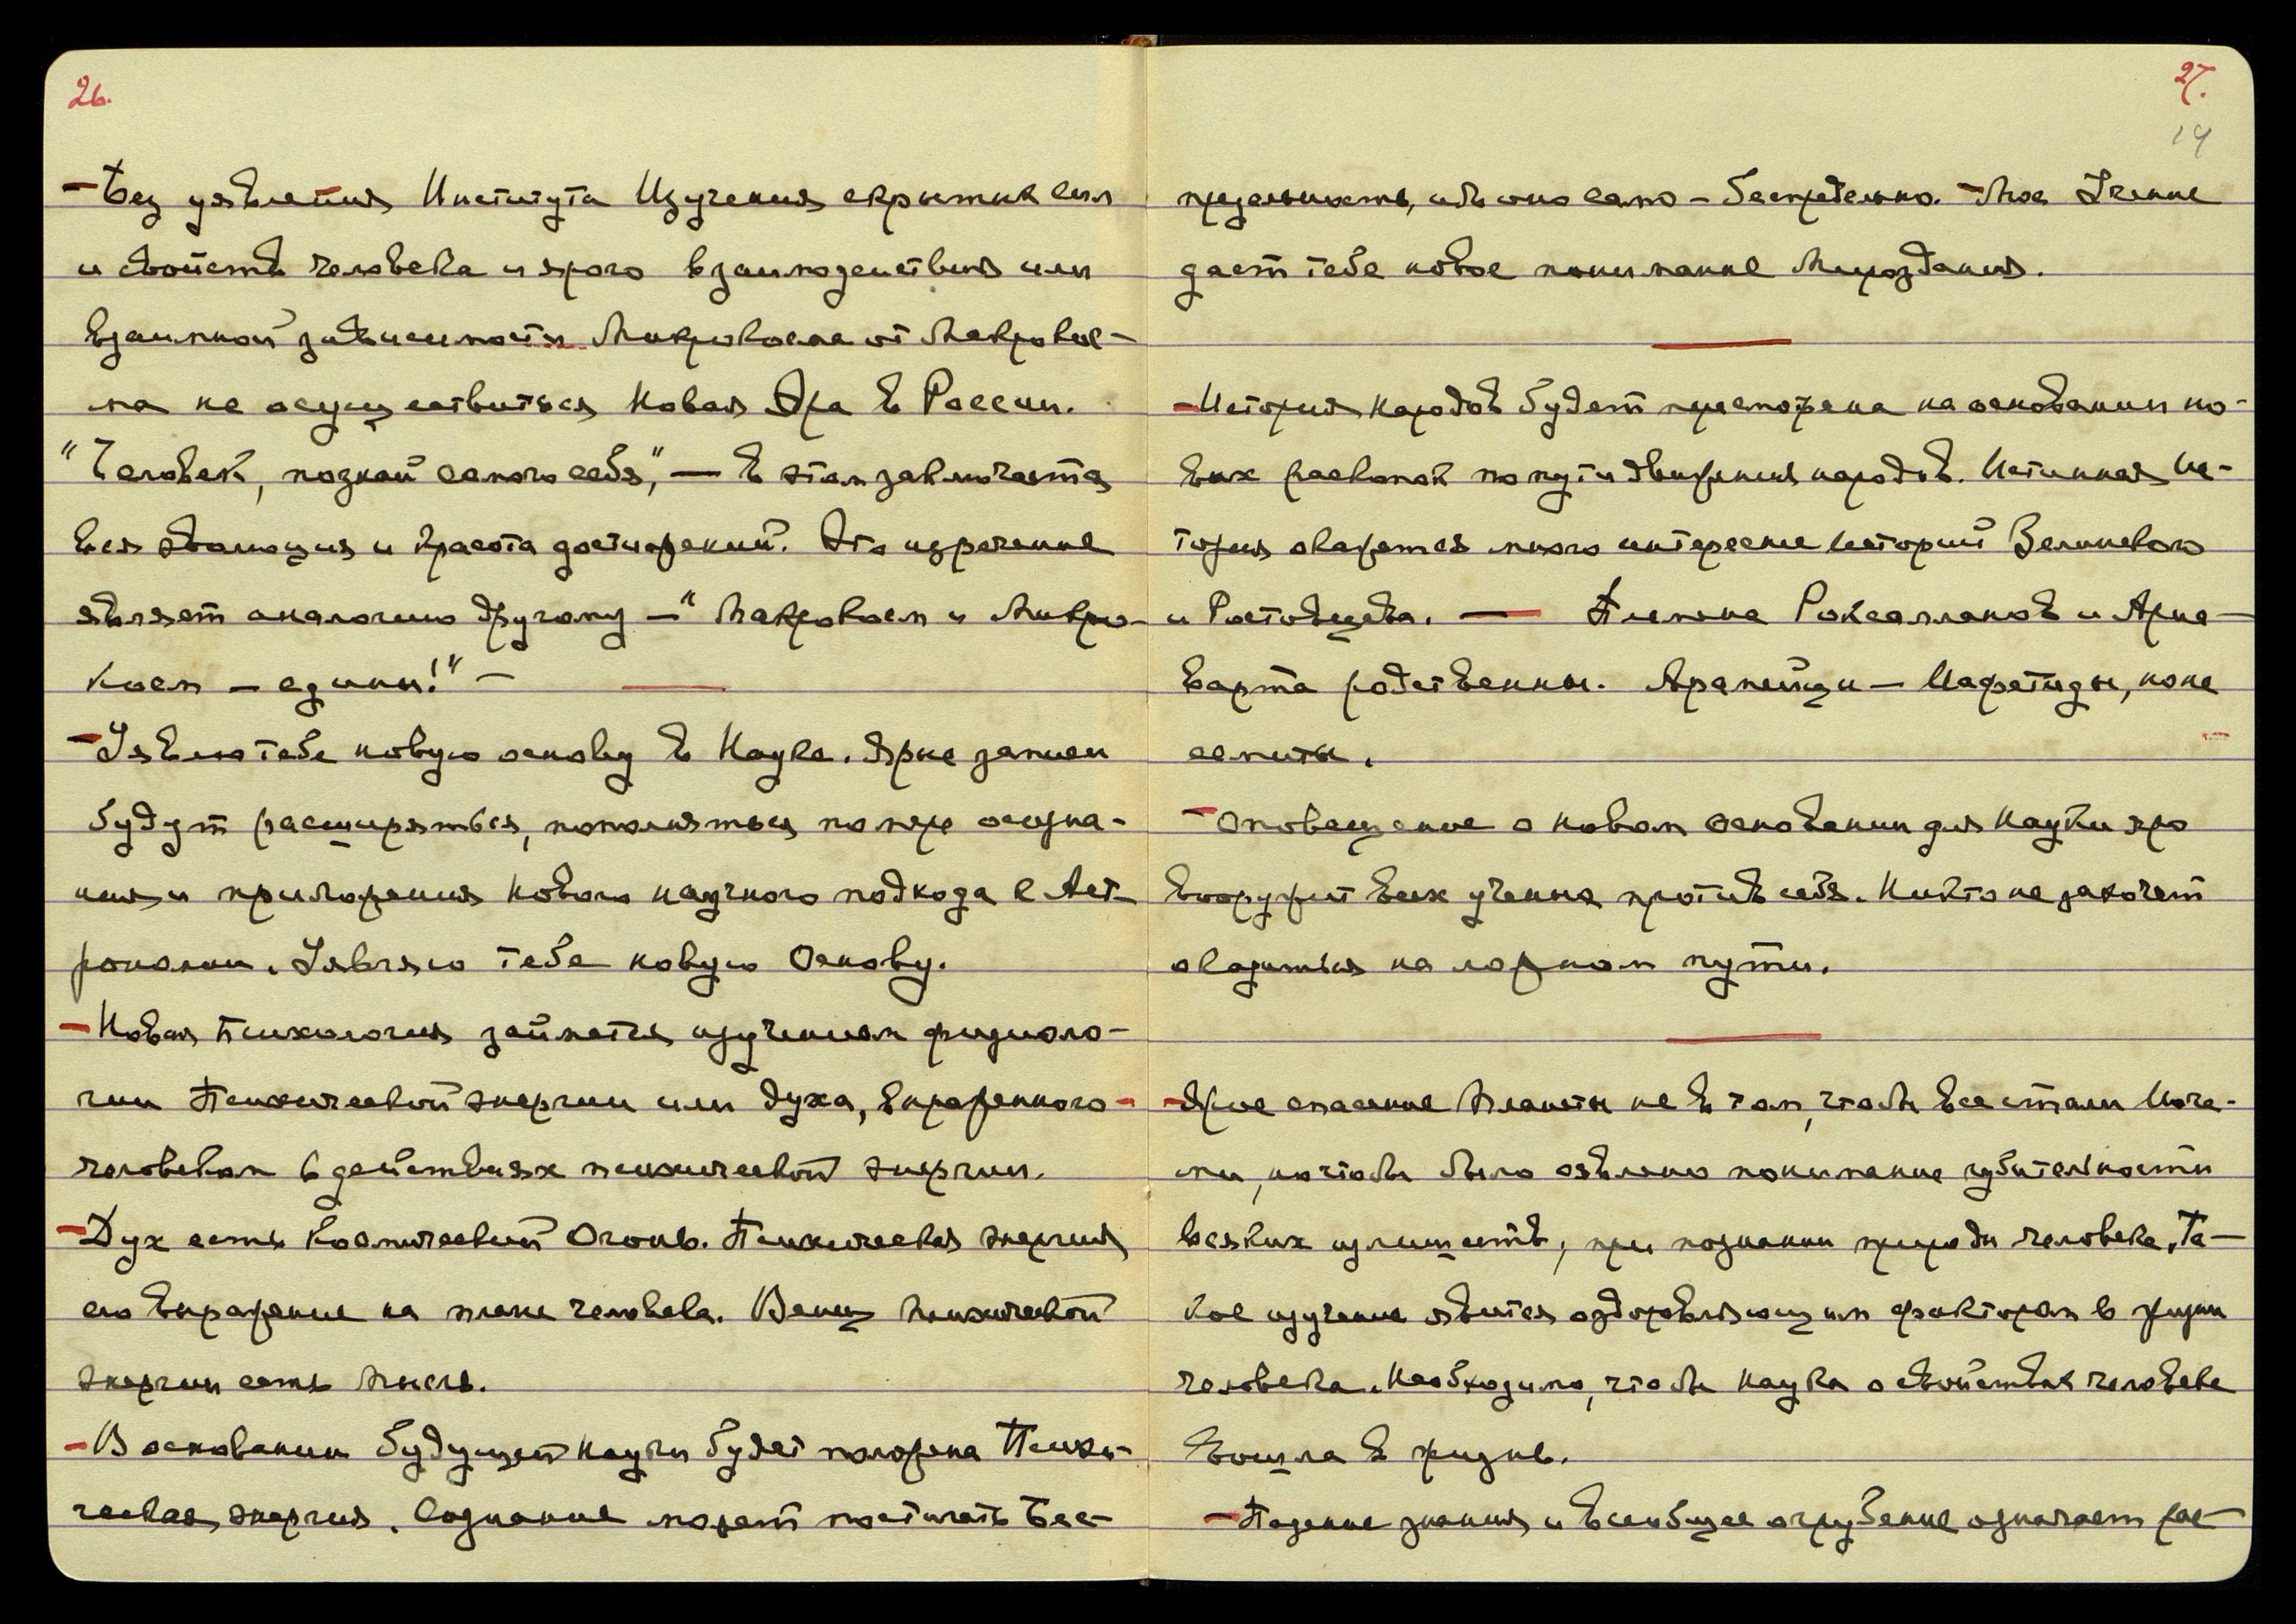 26.
- Без уявления Института Изучения скрытых сил
и свойств человека и ярого взаимодействия или
взаимной зависимости Микрокосма от Макрокос-
ма не осуществиться Новая Эра в России.
"Человек, познай самого себя," — в этом заключается
вся эволюция и красота достижений. Это изречение
являет аналогию другому — "Макрокосм и Микро-
косм — едины!" —
- Уявлю тебе новую основу в Науке. Ярые записи
будут расширяться, пополняться по мере осозна-
ния и приложения нового научного подхода к Аст-
рономии. Уявляю тебе новую Основу.
- Новая Психология займется изучением физиоло-
гии Психической энергии или духа, выраженного
человеком в действиях психической энергии.
- Дух есть Космический Огонь. Психическая энергия
его выражение на плане человека. Венец психической
энергии есть мысль.
- В основании будущей науки будет положена Психи-
ческая энергия. Сознание может постигать Бес-
27.
14
предельность, ибо оно само – беспредельно. - Мое Учение
дает тебе новое понимание Мироздания.
- История народов будет пересмотрена на основании но-
вых раскопок по пути движения народов. Истинная Ис-
тория окажется много интереснее историй Велиевского
и Ростовцева. — Племена Роксалланов и Ариа-
варта родственны. Арамейцы — Иафетиды, но не
семиты.
- Оповещение о новом основании для Науки яро
вооружит всех ученых против себя. Никто не захочет
оказаться на ложном пути.
- Ярое спасение планеты не в том, чтобы все стали Иога-
ми, но чтобы было явлено понимание губительности
всяких излишеств, при познании природы человека. Та-
кое изучение явится оздоровляющим фактором в жизни
человека. Необходимо, чтобы наука о свойствах человека
вошла в жизнь.
- Падение знания и всеобщее огрубение означает рас-